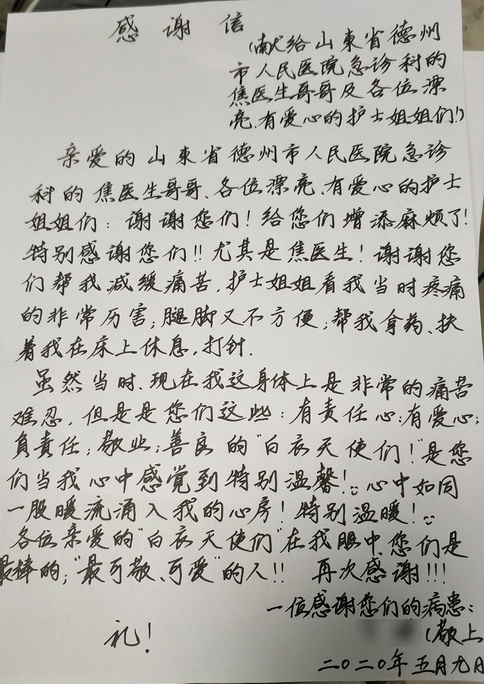 感谢信
(献给山東省德州
市人民医院急诊科的
焦医生哥哥及各位漂
亮、有爱心的护士姐姐们!)
亲爱的山東省德州市人民医院急诊
科的焦医生哥哥、各位漂亮、有爱心的护士
姐姐们:谢谢您们!给您们增添麻烦了!
特别感谢您们!!尤其是焦医生!谢谢您
们帮我减缓痛苦,护士姐姐看我当时疼痛
的非常历害;腿脚又不方便;帮我拿药、扶
着我在床上休息,打针.
虽然当时、现在我这身体上是非常的痛苦
难忍,但是是您们这些:有责任心;有爱心;
負責任;敬业;善良的"白衣天使们!"是您
们当我心中感觉到特别温馨!心中如同
一股暖流涌入我的心房!特别温暖!
各位亲爱的"白衣天使们"在我眼中、您们是
最棒的;"最可敬、可爱"的人!! 再次感谢!!!
一位感谢您们的病患:
礼!
(敬上
二〇二〇年五月九日